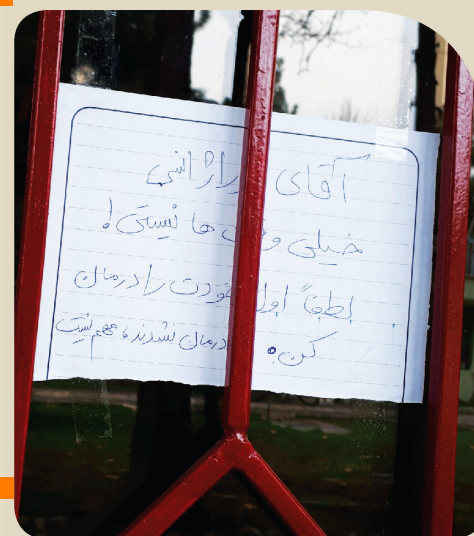 آقای
خیلی وقت ها نیستی!
لطفاً اول خودت را درمان
کن. درمان نشدند، مهم نیست